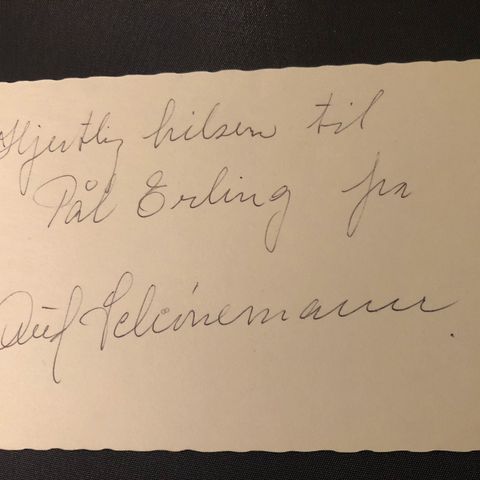 Hjertlig hilsen til
Pål Erling fra
Leif Schönemann